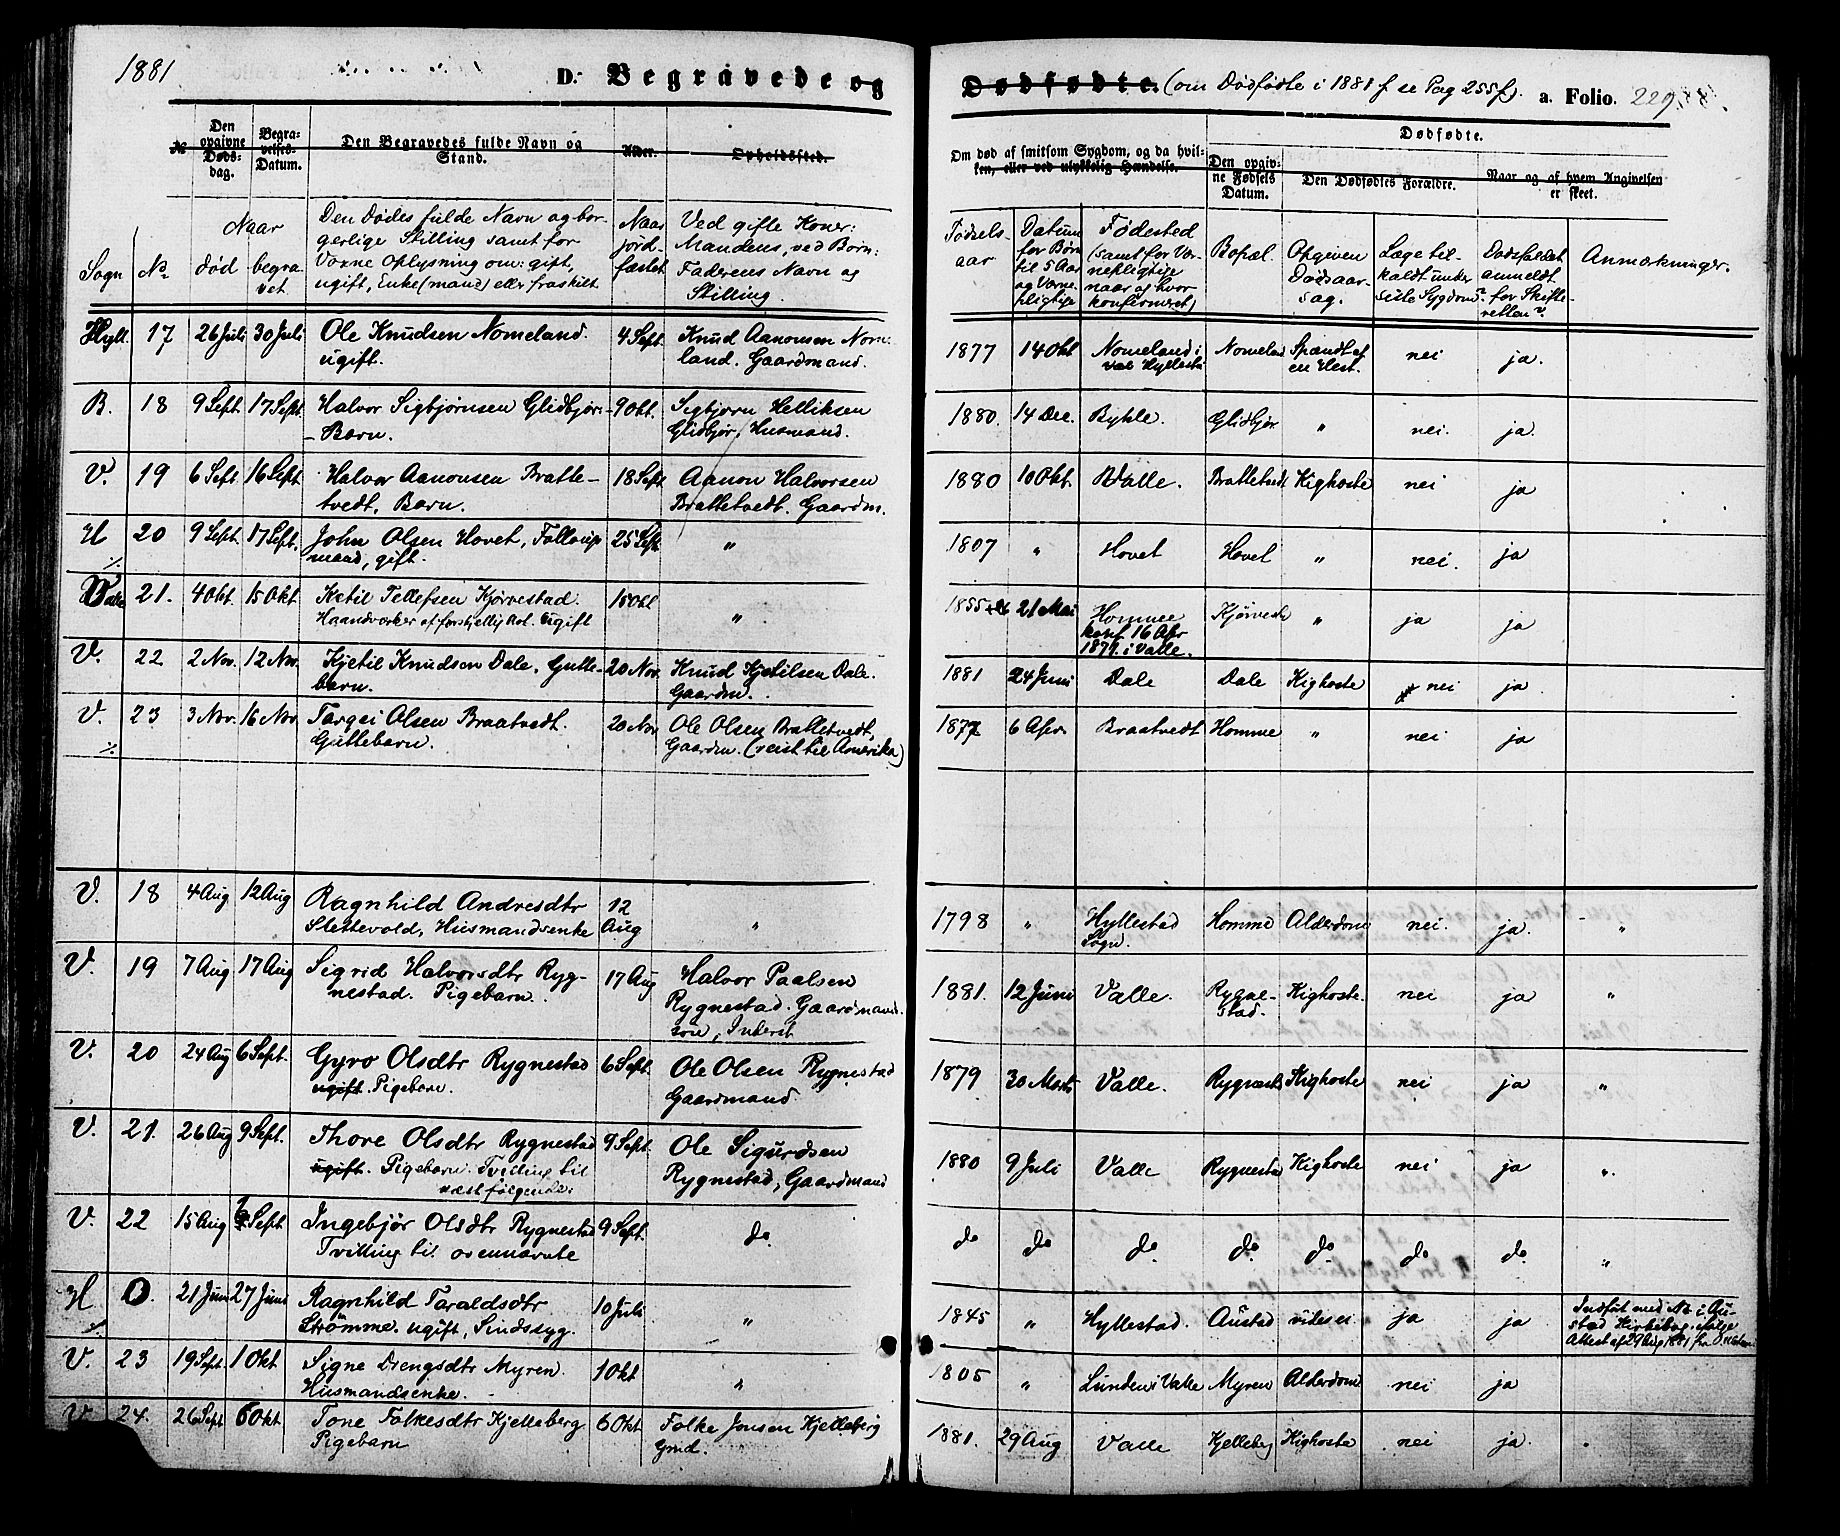 1881
D. Begravede og Dødfødte. (om Dødfødte i 1881 f se Pag 255f). a. Folio. 229
No Den opgivne Dødsdag. Begravelses-Datum. Den Begravedes fulde Navn og Stand. Alder. Opholdssted. Om død af smitsom Sygdom, og da hvilken, eller ved ulykkelig Hændelse. Dødfødte. Den opgivne Fødsels Datum. Den Dødfødtes Forældre. Naar og af hvem Angivelsen er skeet.
Sogn No Naar død begravet Den Dødes fulde Navn og borgerlige Stilling samt for Voxne Oplysning om: gift, ugift, Enke (mand) eller fraskilt Naar jordfæstet Ved gifte Koner: Mandens, ved Børn: Faderens Navn og Stilling. Fødselsaar Datum for Børn til 5 Aar og Værnepligtige Fødested (samt for Værnepligtige naar og hvor konfirmeret) Bopæl. Opgiven Dødsaarsag. Læge tilkaldt under sidste Sygdom? Dødsfaldet anmeldt for Skifteretten? Anmærkninger.
Hyll. 17 26 Juli 30 Juli Ole Knudsen Nomeland. ugift. 4 Sept. Knud Aanonsen Nomland. Gaardmand. 1877 14 Okt Nomeland i Hyllestad Nomeland Spændt af en Hest. nei ja.
B. 18 9 Sept. 17 Sept. Halvor Sigbjørnsen Glidbjør - Barn. 9 Okt. Sigbjørn Helliksen Glidbjør, Husmand. 1880. 14 Dec. Bykle. Glidbjør " nei. ja.
V. 19 6 Sept. 16 Sept. Halvor Aanonsen Brattetvedt, Barn. 18 Sept Aanon Halvorsen Brattetvedt. Gaardm. 1880 10 Okt. Valle. Brattetvedt Kighoste nei ja
H 20 9 Sept. 17 Sept. John Olsen Hovet, Follaugsmand, gift. 25 Sept " 1807 " Hovet Hovet " nei. ja
Valle 21. 4 Okt. 15 Okt Ketil Tellefsen Kjørvestad. Haandværker af forskjellig Art. ugift 15 Okt " 1855 21 Mai Homme konf 16 Apr 1871. i Valle. Kjørvestad " ja ja
V. 22 2 Nov. 12 Nov. Kjetil Knudsen Dale, Guttebarn. 20 Nov. Knud Kjetilsen Dale. Gaardm. 1881 24 Juni Dale Dale Kighoste nei ja
V. 23 3 Nov. 16 Nov. Targei Olsen Braatvedt. Guttebarn. 20 Nov Ole Olsen Brattetvedt, Gaardm. (reist til Amerika) 1877 6 Apr Braatvedt Homme " nei ja
V. 18 4 Aug 12 Aug Ragnhild Andresdtr Slettevold, Husmandsenke 12 Aug " 1798 " Hyllestad Sogn. Homme Alderdom nei. ja. "
V. 19 7 Aug 17 Aug Sigrid Halvorsdtr Rygnestad. Pigebarn. 17 Aug Halvor Paalsen Rygnestad. Gaardmandssøn, Inderst 1881. 12 Juni Valle. Rygnestad. Kighoste. nei ja "
V. 20 24 Aug 6 Sept. Gyro Olsdtr Rygnestad ugift Pigebarn. 6 Sept. Ole Olsen Rygnestad Gaardmand 1879 30 Marts Valle. Rygnestad Kighoste nei ja "
V. 21. 26 Aug 9 Sept. Thore Olsdtr Rygnestad ugift. Pigebarn. Tvilling til næstfølgende. 9 Sept. Ole Sigurdsen Rygnestad, Gaardmand 1880 9 Juli Valle Rygnestad Kighoste nei ja "
V. 22 15 Aug Sept. Ingebjør Olsdtr Rygnestad Tvilling til ovennævnte 9 Sept. do do do do do do do do "
H 0. 21 Juni 27 Juni Ragnhild Taraldsdtr Strømme. ugift, Sindssyg. 10 Juli " 1845 " Hyllestad. Austad vides ei ja ja Indført med No i Austad Kirkebog ifølge Attest af 29 Aug 1881 fra
V. 23 19 Sept. 1 Okt Signe Drengsdtr Myren. Husmandsenke. 1 Okt " 1805 " Lunden i Valle Myren Alderdom nei ja
V 24. 26 Sept 6 Okt. Tone Folkesdtr Kjelleberg Pigebarn 6 Okt Folke Jonsen Kjelleberg Gmd. 1881. 29 Aug Valle Kjelleberg Kighoste nei ja.